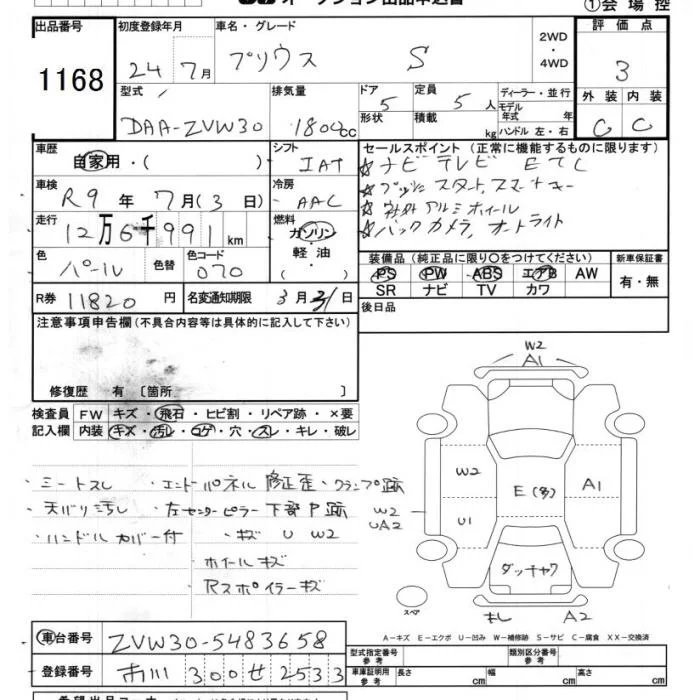 ①会場控
出品番号 初度登録年月 車名・グレード 2WD ・ 4WD 評価点
1168 24年7月 プリウス S 3
型式 排気量 ドア 定員 ディーラー・並行 外装 内装
DAA-ZVW30 1800cc 5 5人 モデル年式 年 C C
形状 積載 kg ハンドル 左・右
車歴 自家用・( ) シフト IAT セールスポイント(正常に機能するものに限ります)
☆ナビ テレビ ETC
車検 R9年7月(3日) 冷房 AAC
☆プッシュスタート、スマートキー
☆社外アルミホイール
走行 12万6千991km 燃料 ガソリン 軽油 ・( )
☆バックカメラ、オートライト
色 パール 色替 色コード 070
装備品(純正品に限り〇をつけてください) 新車保証書
PS PW ABS エアB AW 有・無
SR ナビ TV カワ
R券 11820円 名変通知期限 3月31日
後日品
注意事項申告欄(不具合内容等は具体的に記入して下さい)
修復歴 有 〔箇所 〕
検査員 FW キズ・飛石・ヒビ割・リペア跡・×要
記入欄 内装 キズ・汚レ・コゲ・穴・スレ・キレ・破レ
・シートスレ ・エンドパネル修正歪・クランプ跡
・天バリ汚し ・左センターピラー下部P跡
・ハンドルカバー付 ・キズ U W2
・ホイールキズ
・Rスポイラーキズ
W2
A1
W2 E(多) A1
W2
UA2 U1
ダッチャク
スペア キレ A2
A－キズ E－エクボ U－凹み W－補修跡 S－サビ C－腐食 XX－交換済
車台番号 ZVW30-5483658
型式指定番号 参考 類別区分番号 参考
登録番号 市川 300 せ 2533
車庫証明用 参考 長さ cm 幅 cm 高さ cm